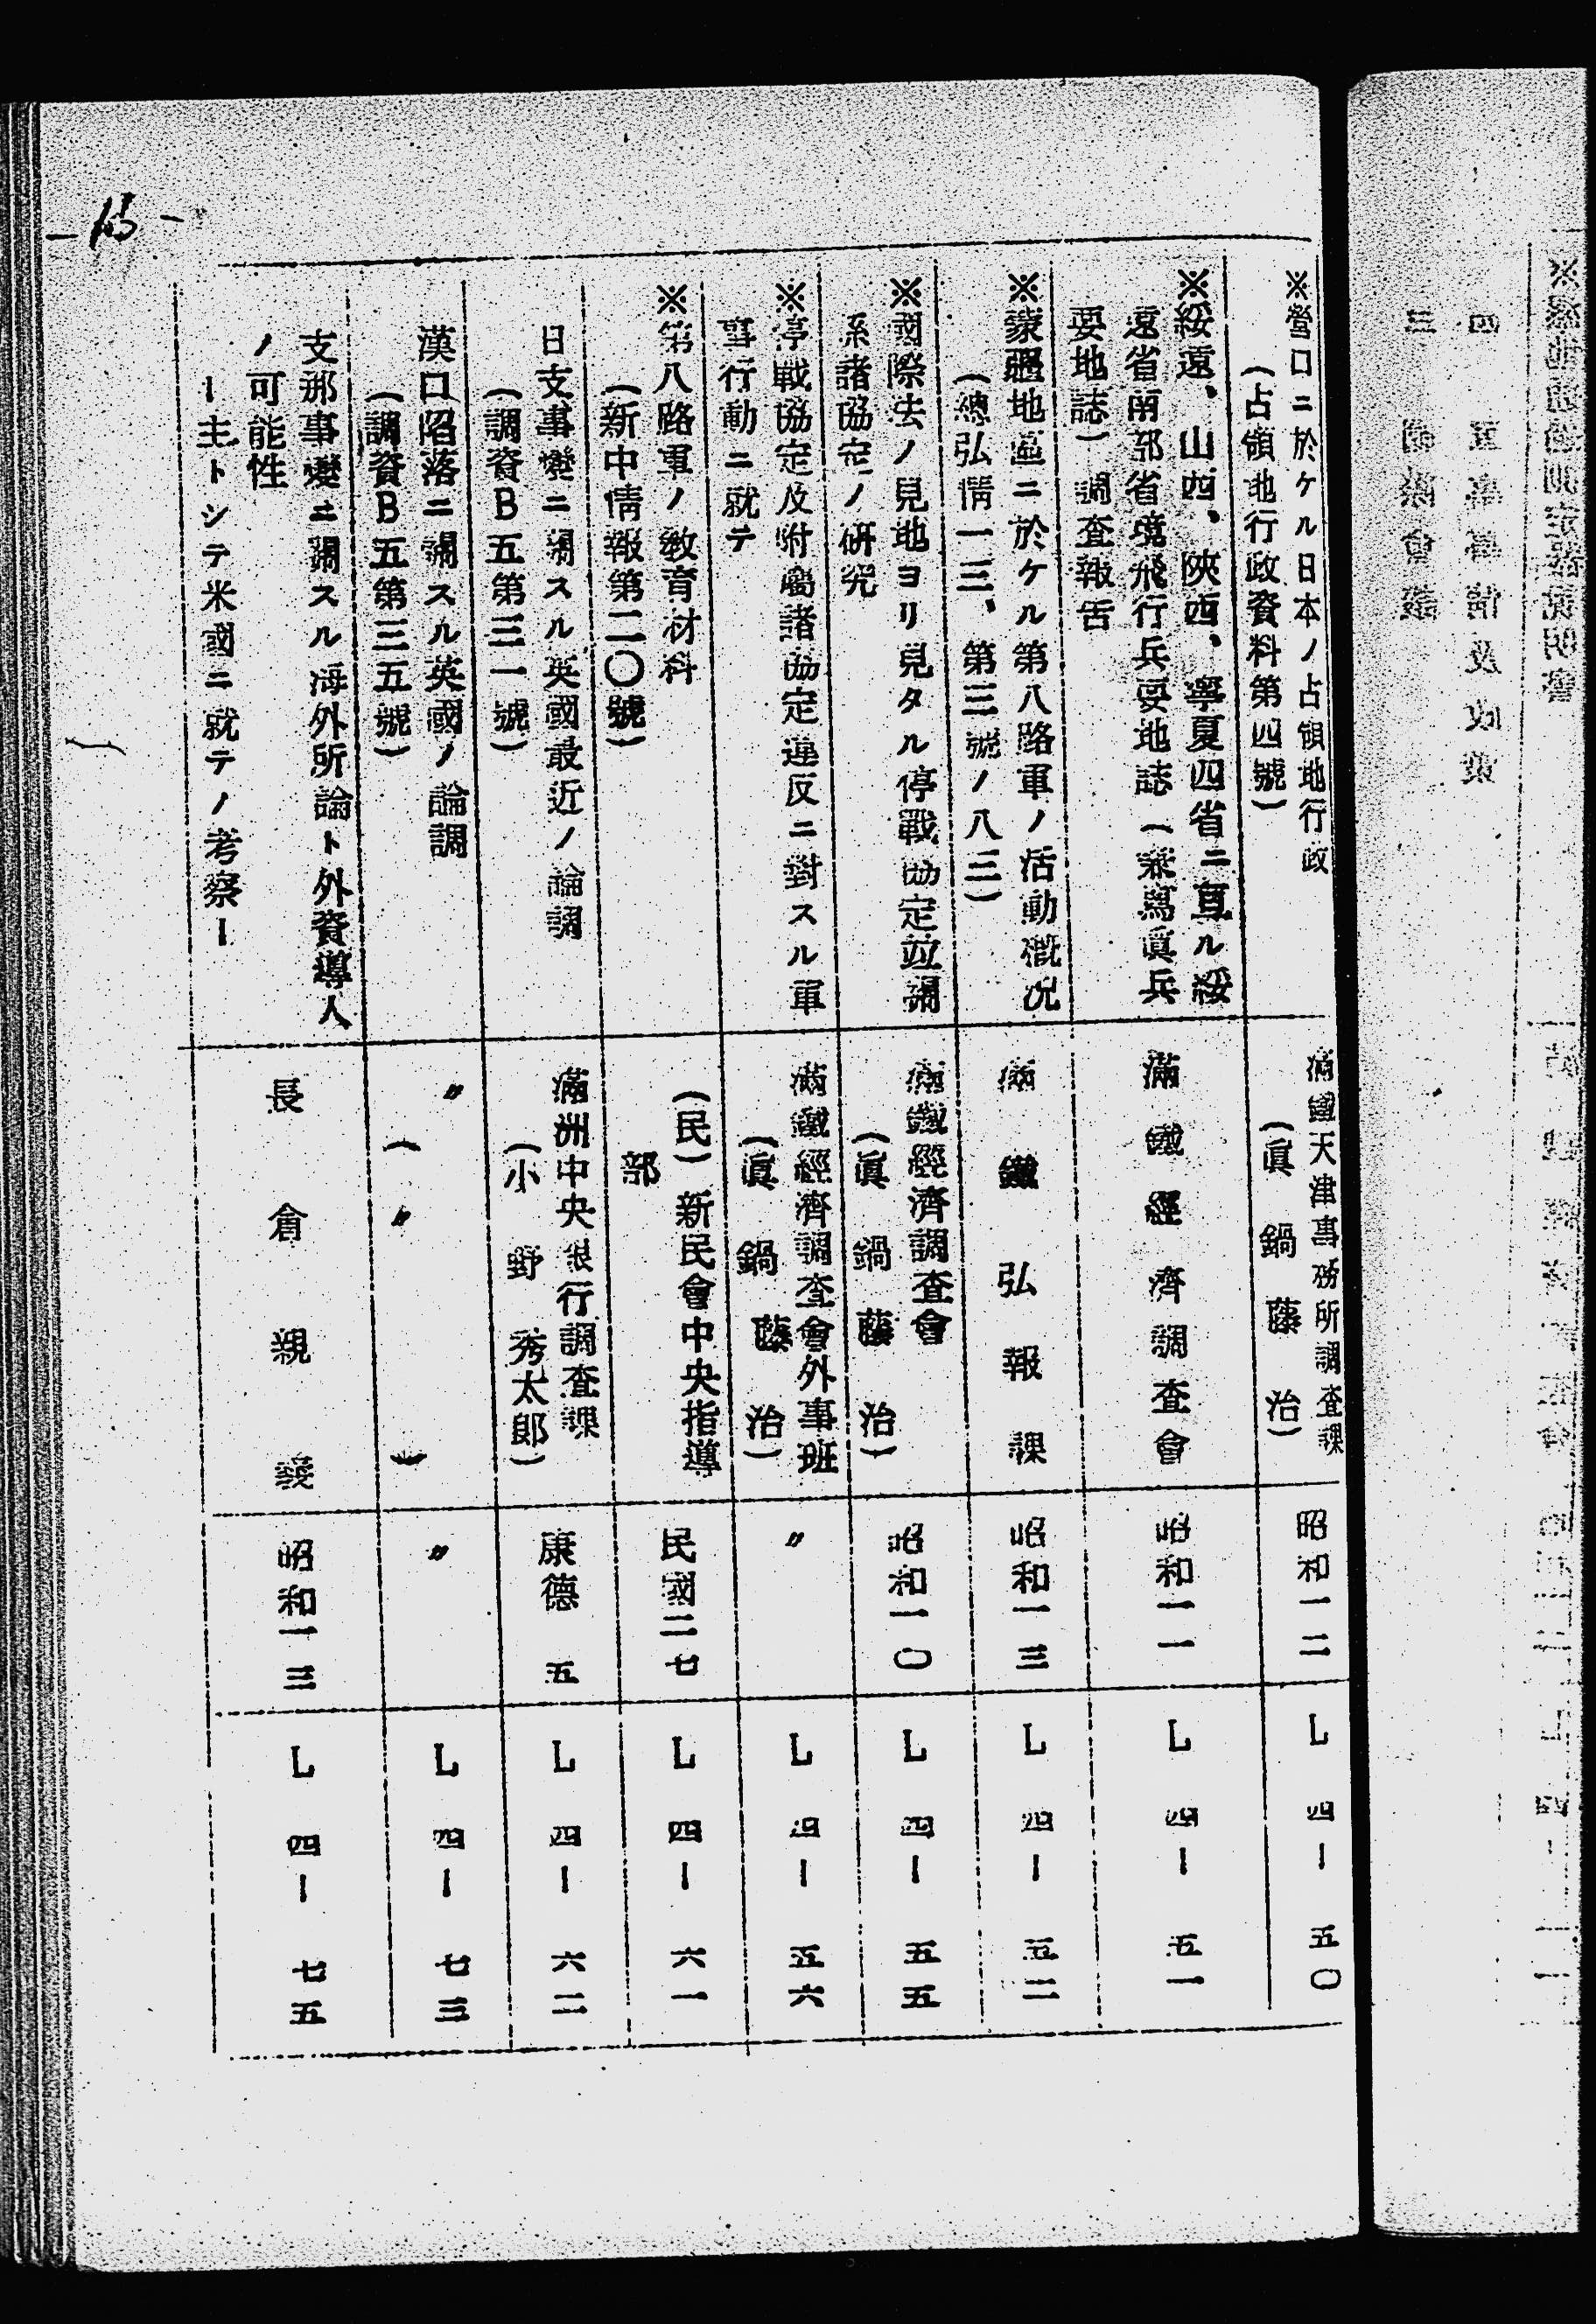 ※營口ニ於ケル日本ノ占領地行政
(占領地行政資料第四號)
滿鐵天津事務所調査課
(眞鍋藤治)
昭和一二
L四ー五〇
※綏遠、山西、陝西、寧夏四省ニ亘ル綏
遠省南部省境飛行兵要地誌(兼寫眞兵
要地誌)調査報告
滿鐵經濟調査會
昭和一一
L四ー五一
※蒙疆地區ニ於ケル第八路軍ノ活動概況
(總弘情一三、第三號ノ八三)
滿鐵弘報課
昭和一三
L四ー五二
※國際法ノ見地ヨリ見タル停戰協定竝關
系諸協定ノ研究
滿鐵經濟調査會
(眞鍋藤治)
昭和一〇
L四ー五五
※停戰協定及附屬諸協定違反ニ對スル軍
事行動ニ就テ
滿鐵經濟調査會外事班
(眞鍋藤治)
〃
L四ー五六
※第八路軍ノ教育材料
(新中情報第二〇號)
(民)新民會中央指導
部
民國二七
L四ー六一
日支事變ニ關スル英國最近ノ論調
(調資B五第三一號)
滿洲中央銀行調査課
(小野秀太郎)
康德五
L四ー六二
漢口陷落ニ關スル英國ノ論調
(調資B五第三五號)
〃
(〃)
〃
L四ー七三
支那事變ニ關スル海外所論ト外資導入
ノ可能性
ー主トシテ米國ニ就テノ考察ー
長倉親義
昭和一三
L四ー七五